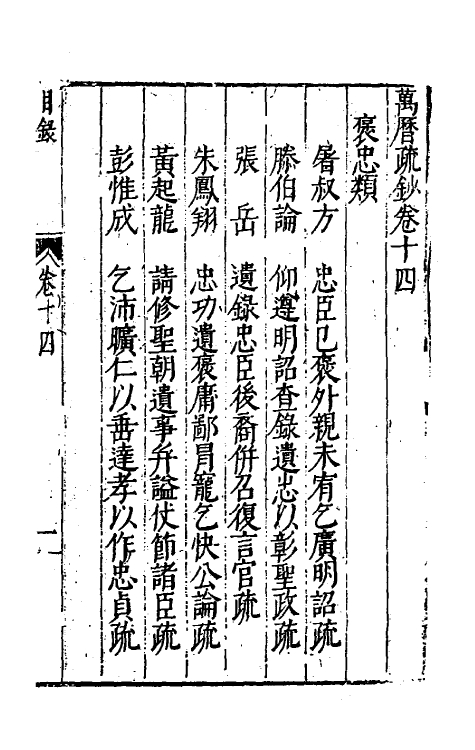 萬曆疏鈔卷十四
褒忠類
屠叔方　忠臣已褒外親未宥乞廣明詔疏
滕伯論　仰遵明詔查錄遺忠以彰聖政疏
張　岳　遺錄忠臣後裔併召復言官疏
朱鳳翔　忠功遺褒庸鄙冐寵乞快公論疏
黃起龍　請修聖朝遺事并謚仗節諸臣疏
彭惟成　乞沛曠仁以垂達孝以作忠貞疏
目錄　卷十四　一